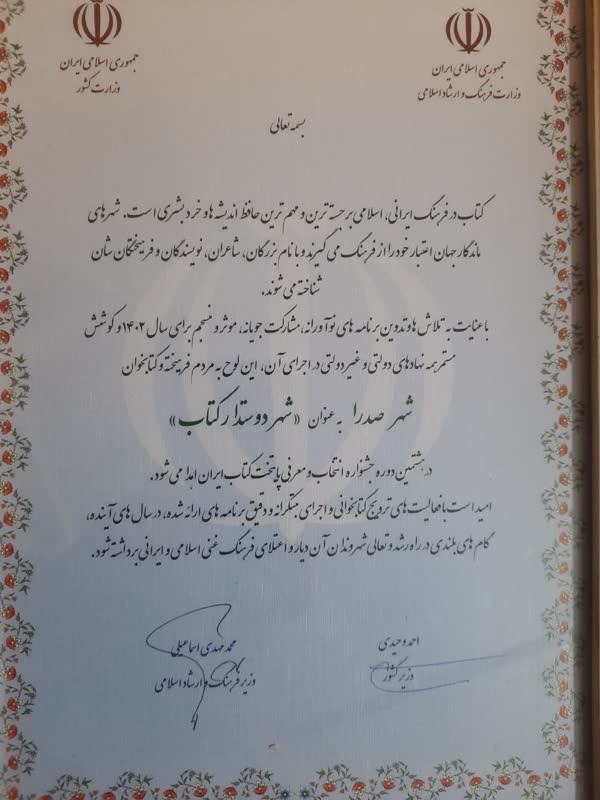 جمهوری اسلامی ایران
وزارت فرهنگ و ارشاد اسلامی
جمهوری اسلامی ایران
وزارت کشور
بسمه تعالی
کتاب در فرهنگ ایرانی، اسلامی برجسته ترین و مهم ترین حافظ اندیشه ها و خرد بشری است، شهرهای
ماندگار جهان اعتبار خود را از فرهنگ می گیرند و با نام بزرگان، شاعران، نویسندگان و فرهیختگان شان
شناخته می شوند.
با عنایت به تلاش ها و تدوین برنامه های نوآورانه، مشارکت جویانه، موثر و منسجم برای سال ۱۴۰۲ و کوشش
مستمر همه نهادهای دولتی و غیر دولتی در اجرای آن، این لوح به مردم فرهیخته و کتابخوان
شهر صدرا به عنوان «شهر دوستدار کتاب»
در هشتمین دوره جشنواره انتخاب و معرفی پایتخت کتاب ایران اهدا می شود.
امید است با فعالیت های ترویج کتابخوانی و اجرای مبتکرانه و دقیق برنامه های ارائه شده، در سال های آینده،
گام های بلندی در راه رشد و تعالی شهروندان آن دیار و اعتلای فرهنگ غنی اسلامی و ایرانی برداشته شود.
احمد وحیدی
وزیر کشور
محمد مهدی اسماعیلی
وزیر فرهنگ و ارشاد اسلامی